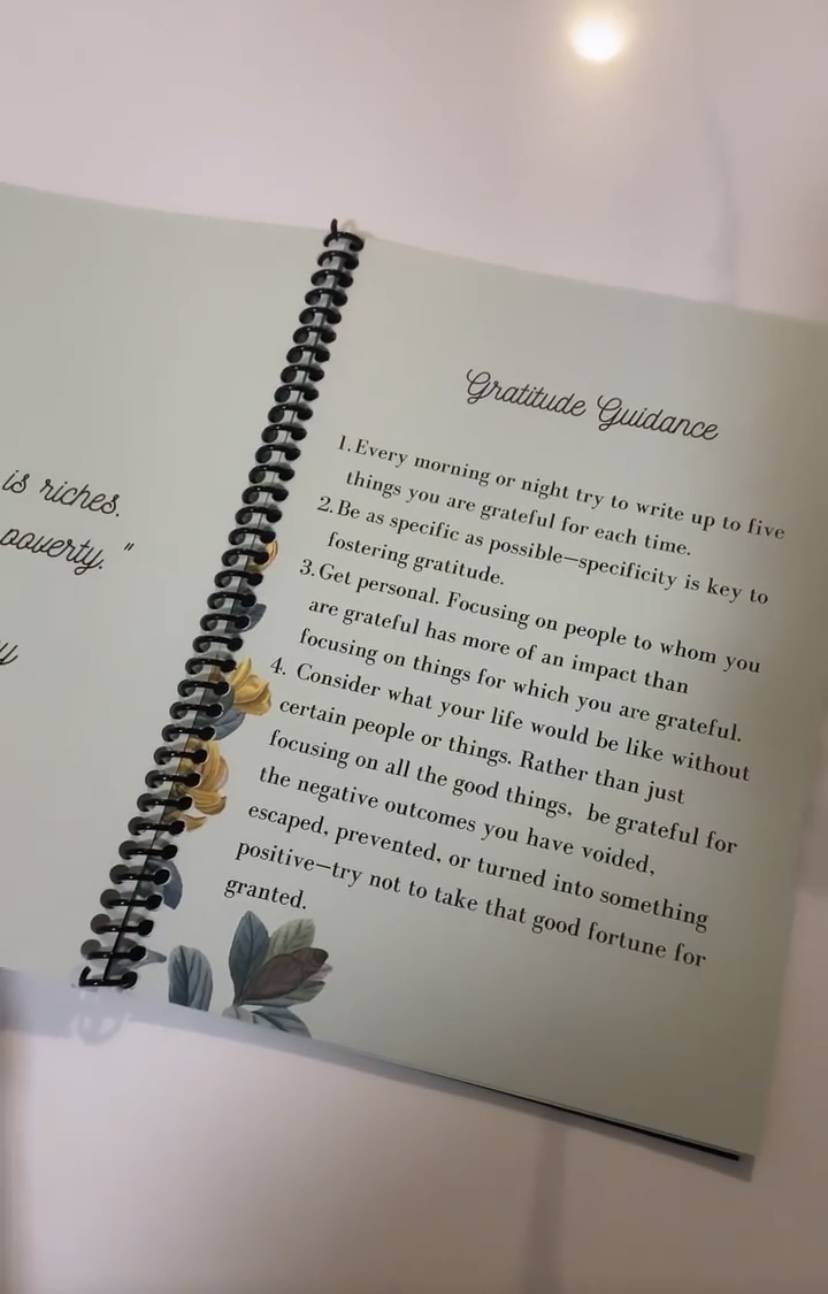 is riches.
poverty."
y
Gratitude Guidance
1. Every morning or night try to write up to five
things you are grateful for each time.
2. Be as specific as possible—specificity is key to
fostering gratitude.
3. Get personal. Focusing on people to whom you
are grateful has more of an impact than
focusing on things for which you are grateful.
4. Consider what your life would be like without
certain people or things. Rather than just
focusing on all the good things, be grateful for
the negative outcomes you have voided,
escaped, prevented, or turned into something
positive—try not to take that good fortune for
granted.